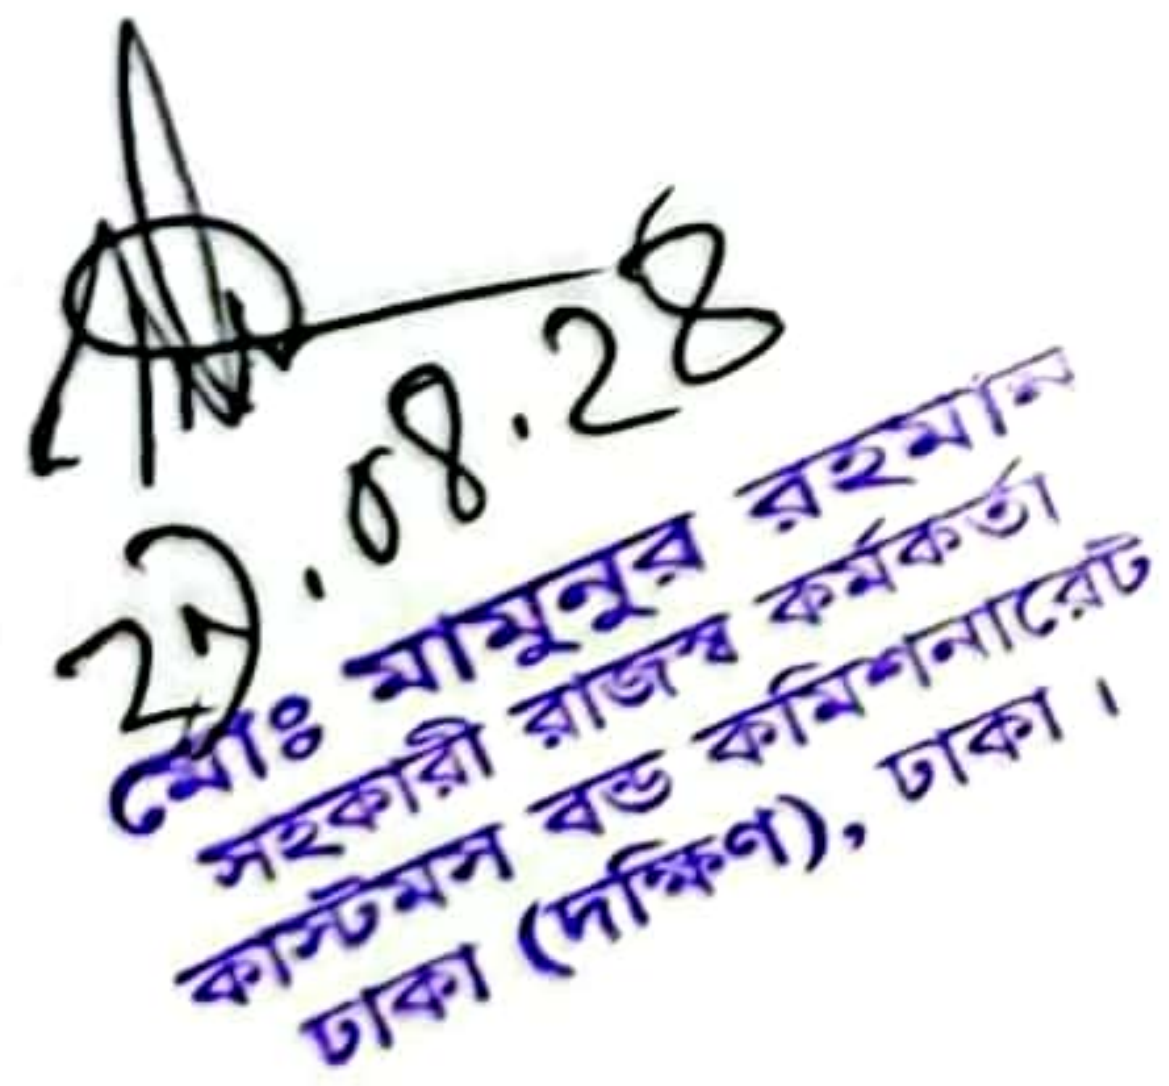 ২৯.০৪.২৪
মোঃ মামুনুর রহমান
সহকারী রাজস্ব কর্মকর্তা
কাস্টমস বন্ড কমিশনারেট
ঢাকা (দক্ষিণ), ঢাকা।